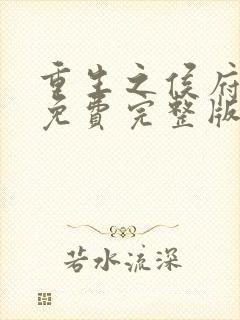 重生之侯府
免費完整版
若水流深